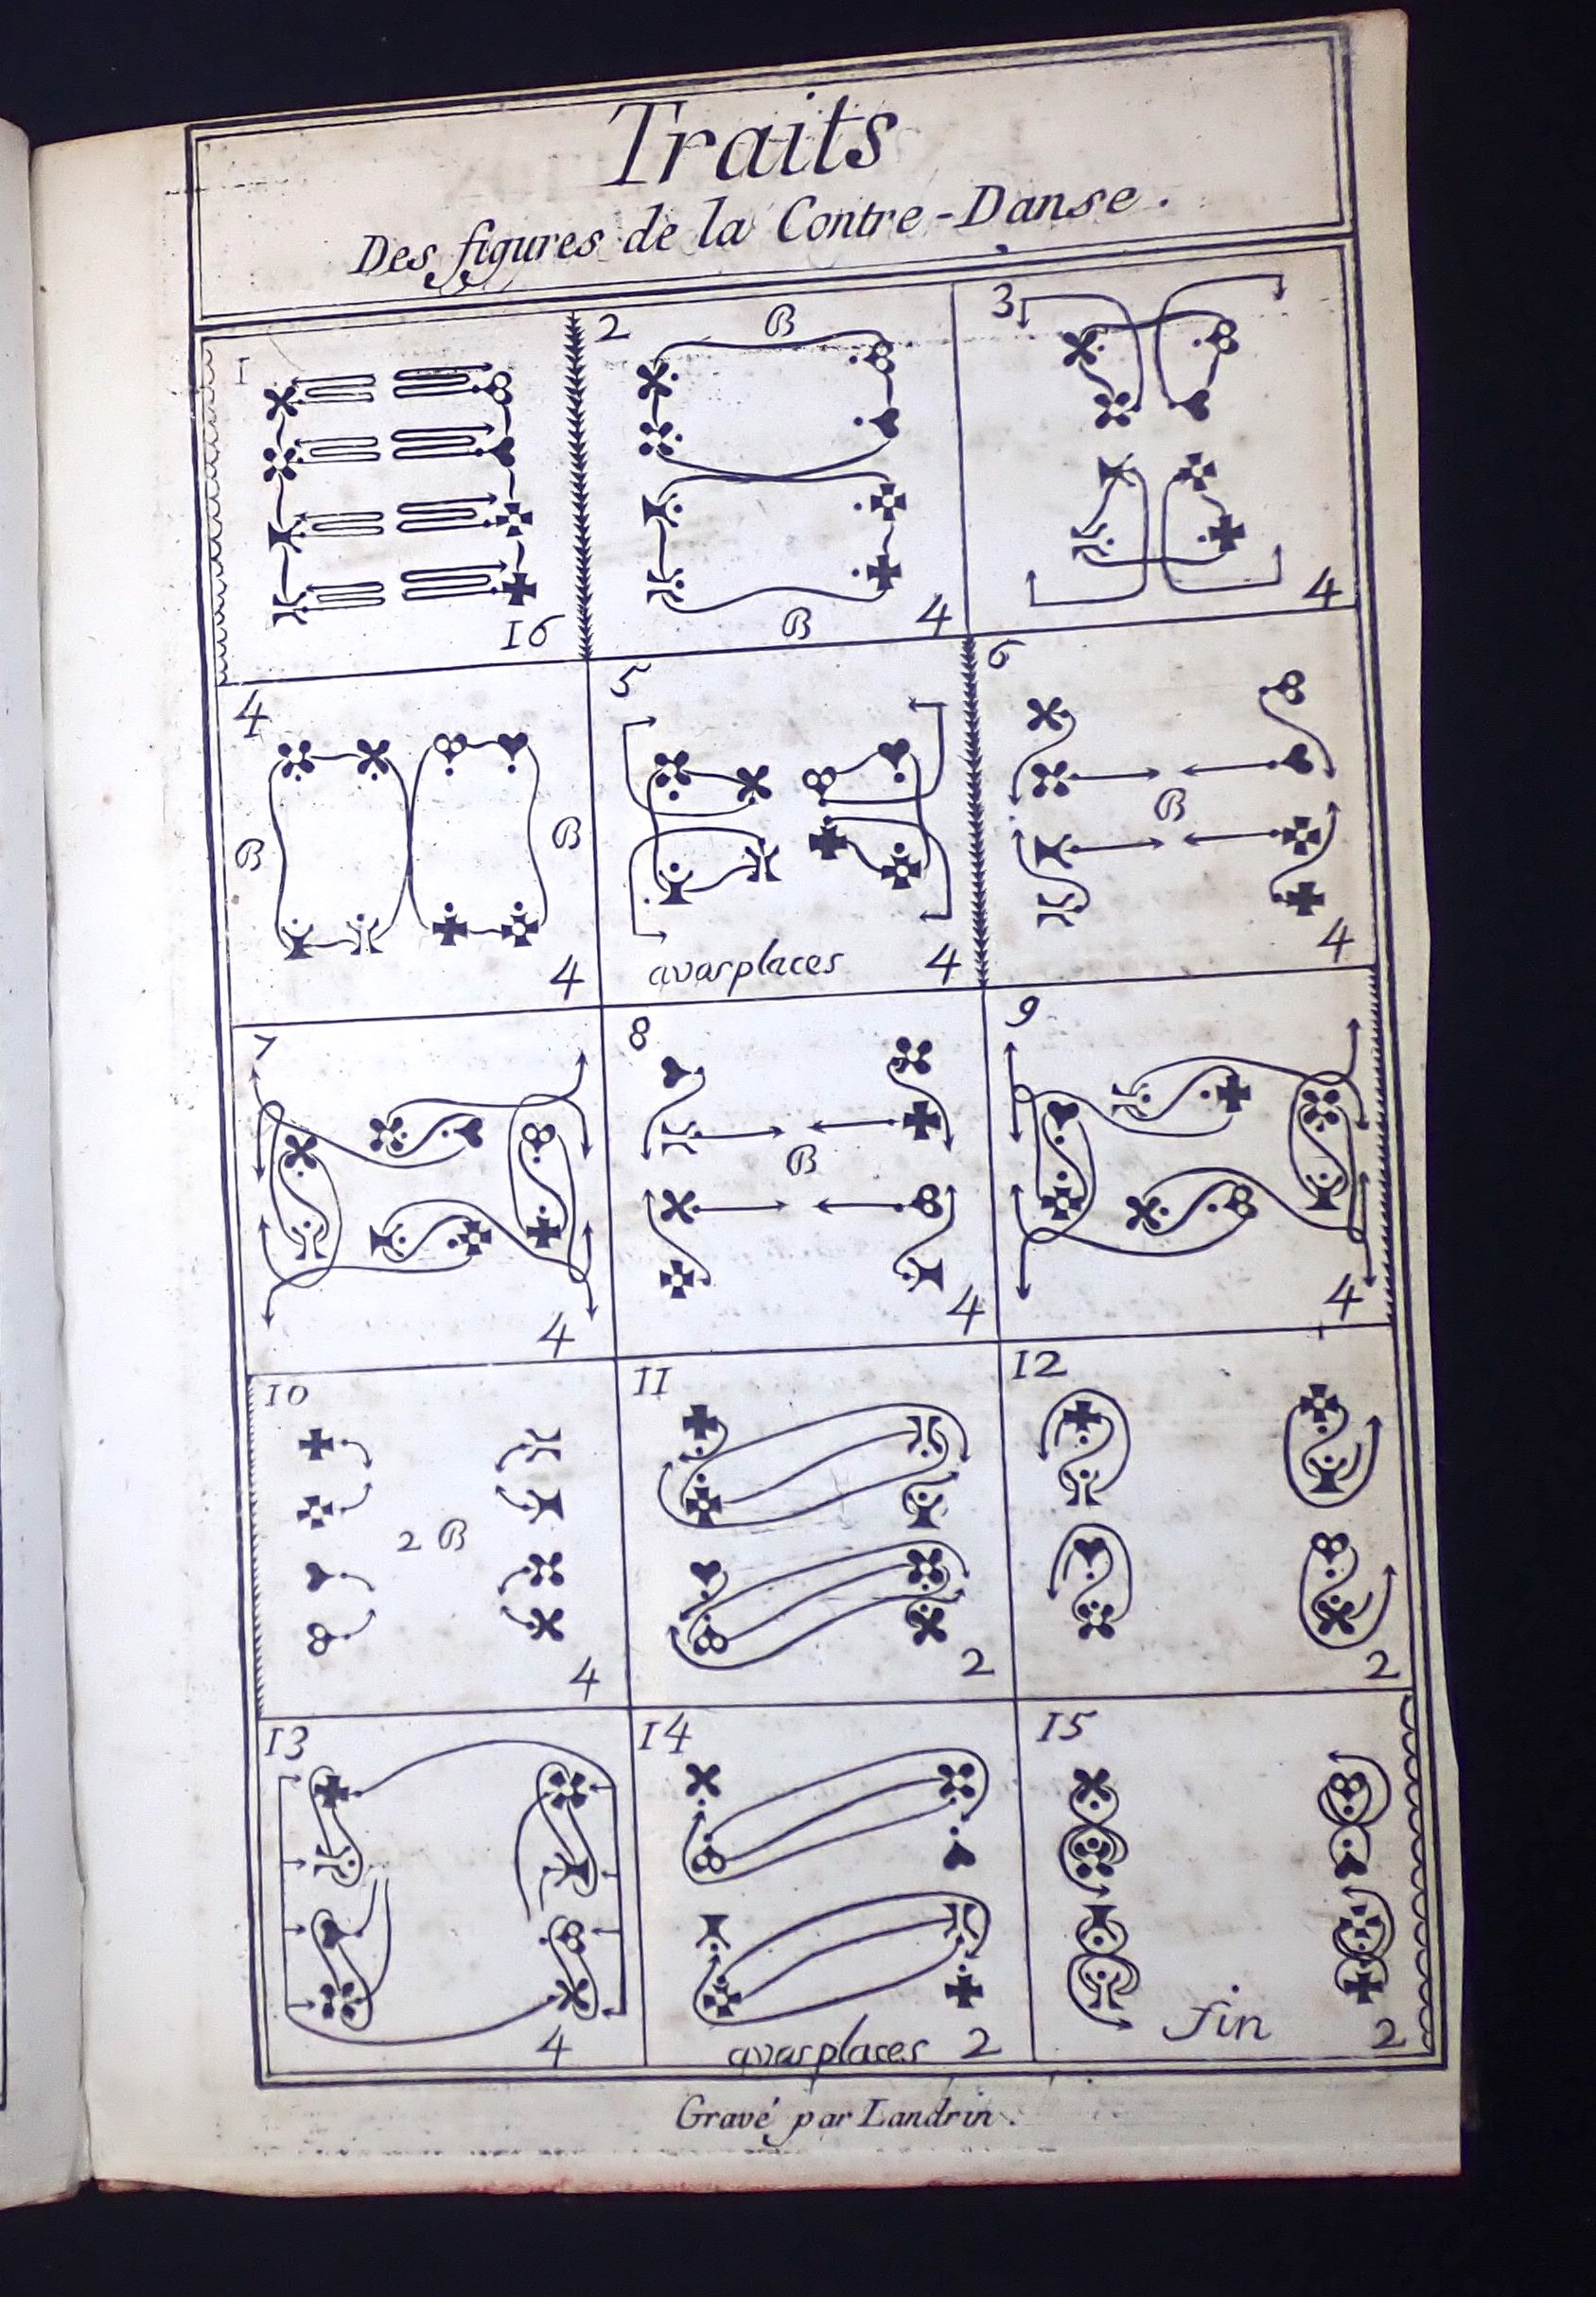 Traits
Des figures de la Contre-Danse.
1
16
2
B
B
4
3
4
4
B
B
4
5
avasplaces
4
6
B
4
7
4
8
B
4
9
4
10
2 B
4
11
2
12
2
13
4
14
avasplaces
2
15
fin
2
Gravé par Landrin.